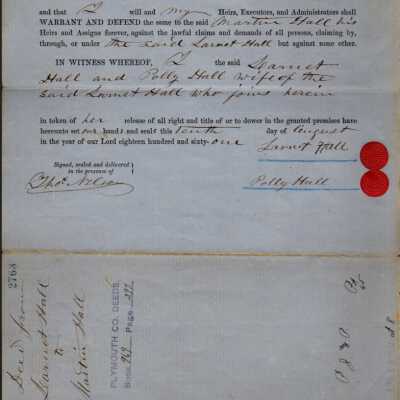 and that I will and my Heirs, Executors, and Administrators shall
WARRANT AND DEFEND the same to the said Martin Hall his
Heirs and Assigns forever, against the lawful claims and demands of all persons, claiming by,
through, or under the said Larnet Hall but against none other.
IN WITNESS WHEREOF, I the said Larnet
Hall and Polly Hall wife of the
said Larnet Hall who joins herein
in token of her release of all right and title of or to dower in the granted premises have
hereunto set our hands and seals this tenth day of August
in the year of our Lord eighteen hundred and sixty-one
Larnet Hall
Signed, sealed and delivered
in the presence of
Polly Hall
Thos. Nelson
2768
Deed from
Larnet Hall
to
Martin Hall
PLYMOUTH CO. DEEDS.
Book Page